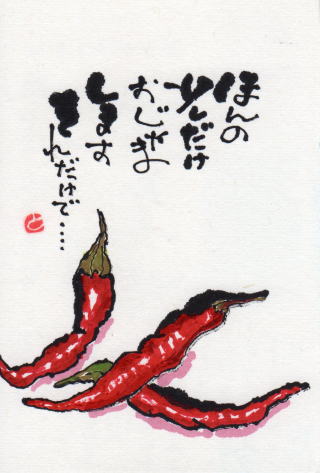 ほんの
少しだけ
おじゃま
します
それだけで‥‥
と